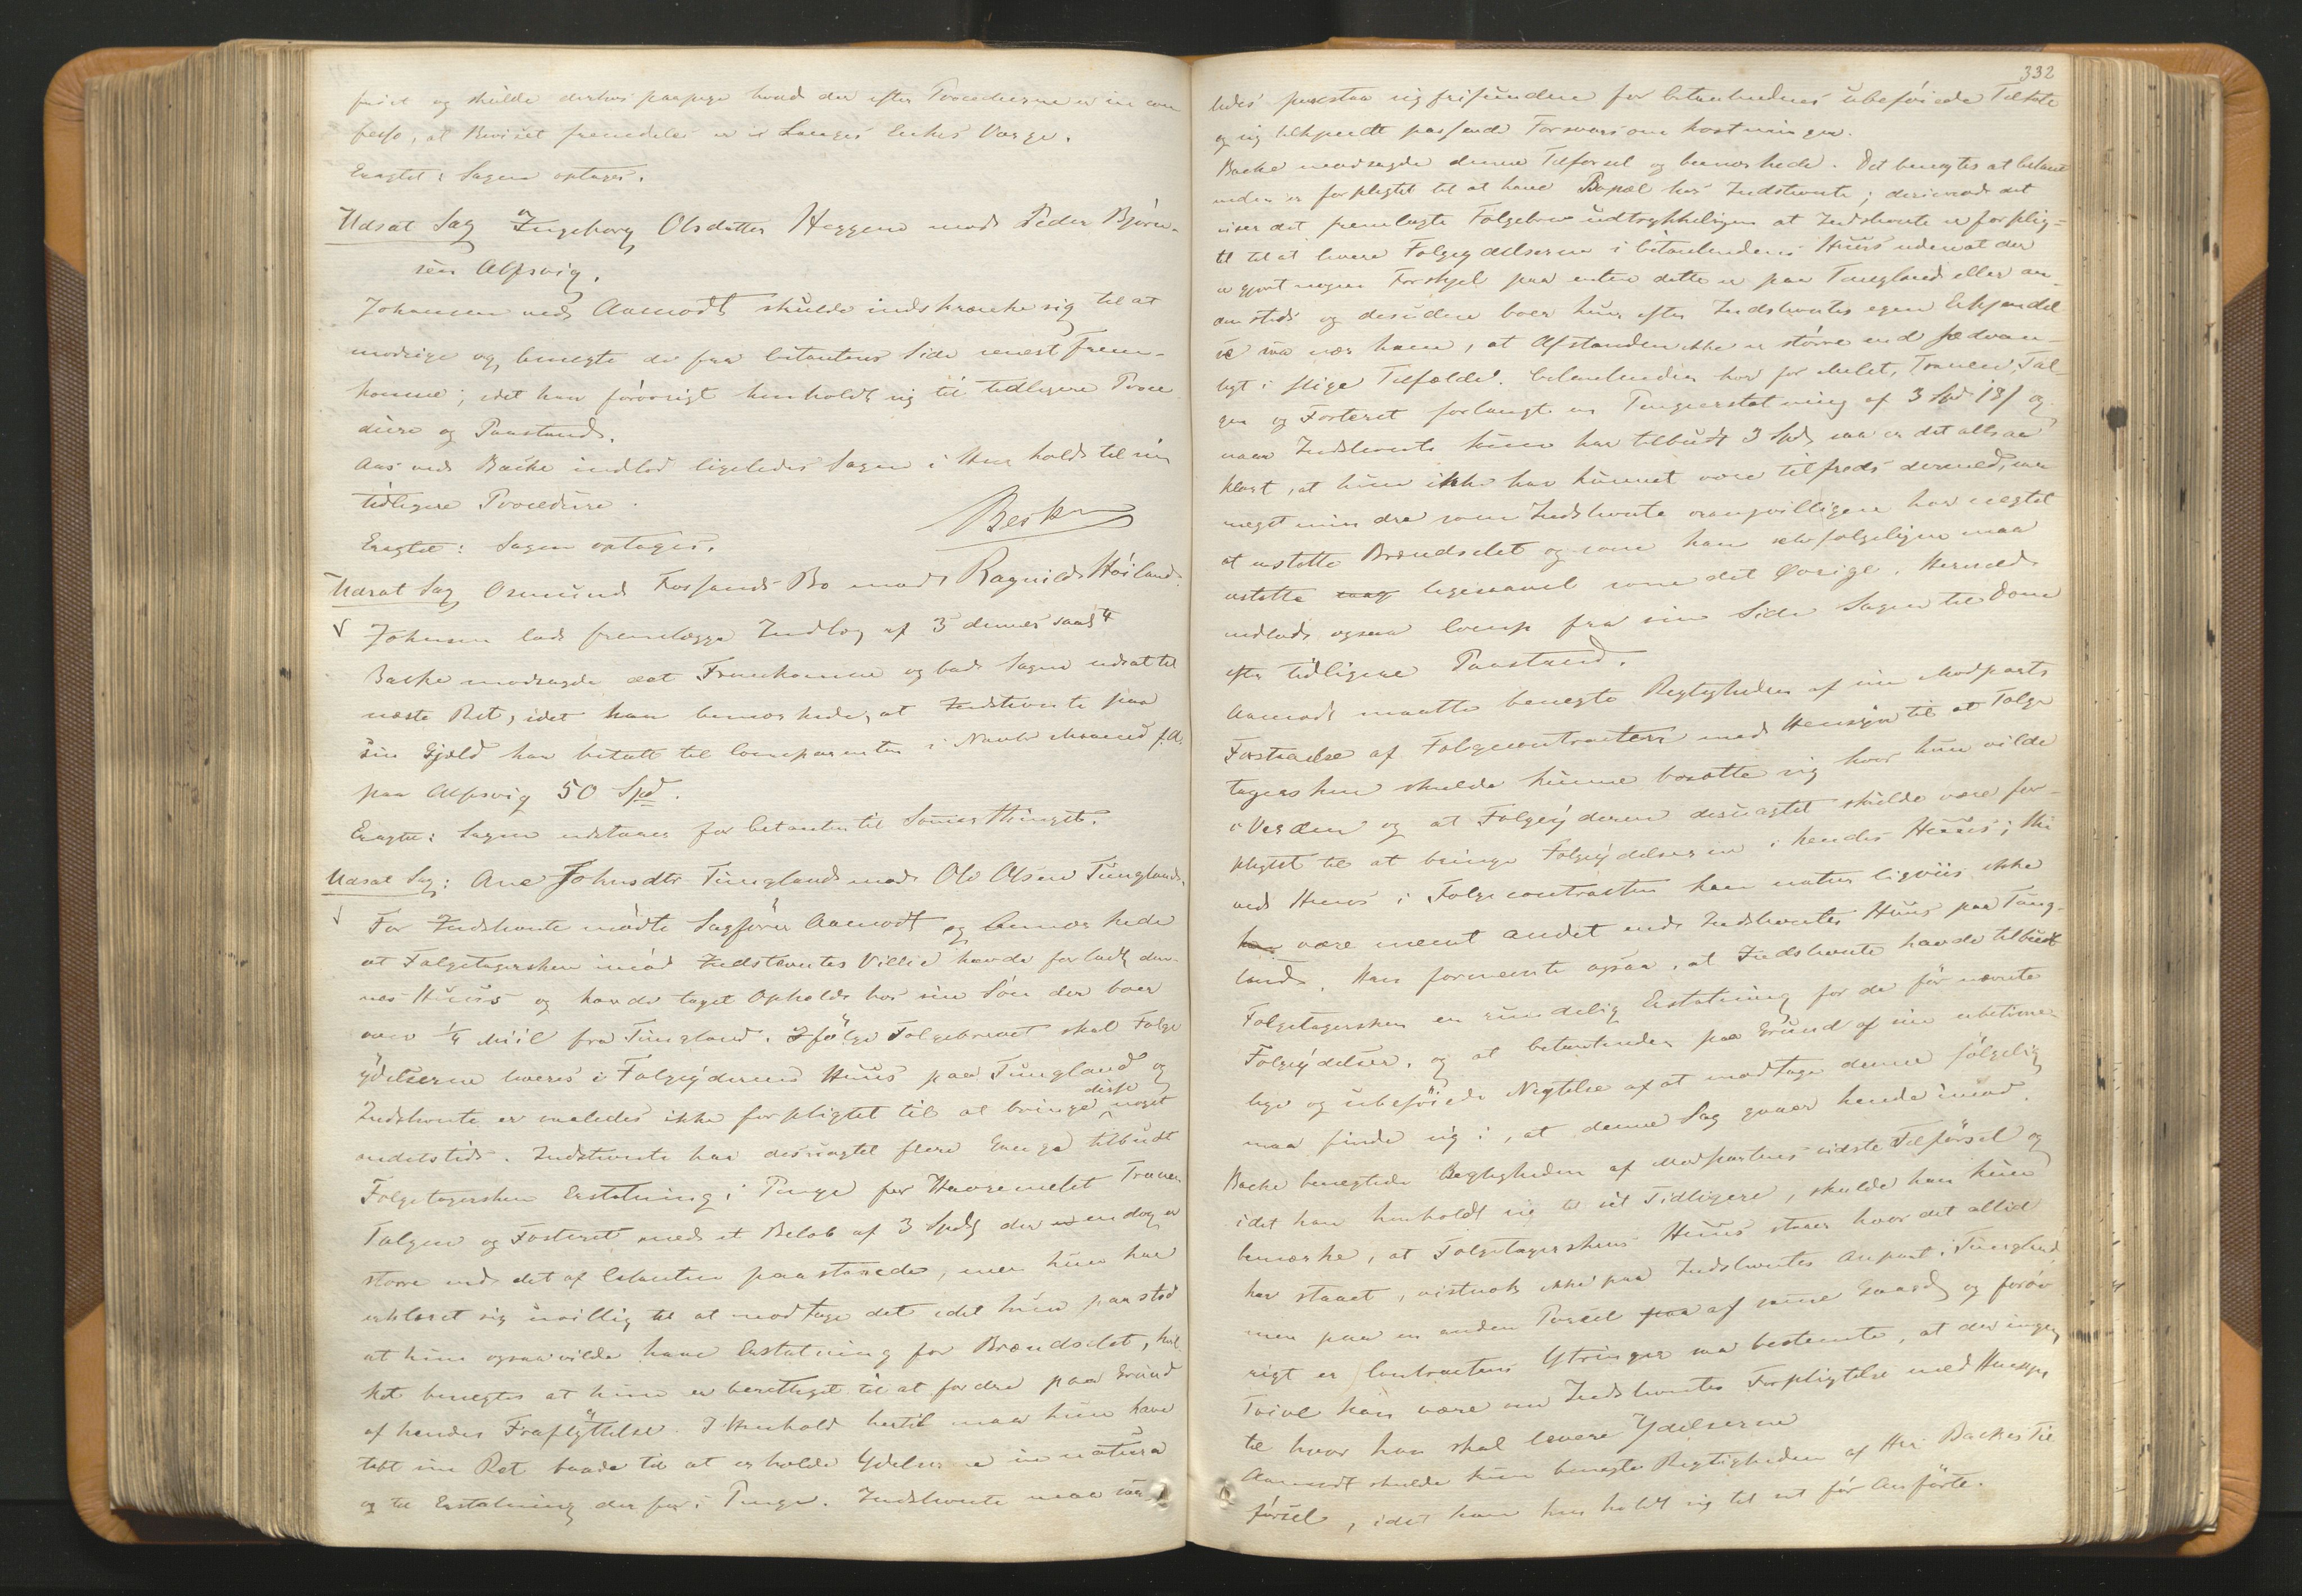 og skulde derhos paapege hvad der efter Proceduren er in con
fesso, at Beviset fremdeles er i Langes Enkes Værge.
Eragtet: Sagen optages.
Udsat Sag Ingeborg Olsdatter Heggem mod Peder Björn-
sen Alfsvig.
Johansen ved Aamodt skulde indskrænke sig til at
modsige og benegte de fra Citantens Side senest Frem-
komne; idet han forövrigt henholdt sig til tidligere Proce
dure og Paastand.
Aas ved Backe indlod ligeledes Sagen i Henhold til sin
tidligere Procedure.
Eragtet: Sagen optages.
Udsat Sag Osmund Fossands Bo mod Ragnild Höiland.
Johnsen lod fremlægge Indlæg af 3 dennes
Backe modsagde det Fremkomne og bad Sagen udsat til
næste Ret, idet han bemærkede, at Indstevnte paa
sin Gjæld har betalt til Comparenten i Marts Maaned f.A.
paa Alfsvig 50 Spd.
Eragtet: Sagen udstaaer for Citanten til Sommerthinget.
Udsat Sag: Ane Johnsdtr Tungland mod Ole Olsen Tungland.
For Indstevnte mödte Sagförer Aamodt og bemærkede
at Folgetagersken imod Indstevntes Villie havde forladt den-
nes Huus og havde taget Ophold hos sin Sön der boer
over 1/4 Miil fra Tungland. Ifölge Folgebrevet skal Folge
ydelserne leveres i Folgeyderens Huus paa Tungland og
Indstevnte er saaledes ikke forpligtet til at bringe disse noget
andetsteds. Indstevnte har desuagtet flere Gange tilbudt
Folgetagersken Erstatning i Penge for Havremelet Tranen
Talgen og Fosteret med et Belöb af 3 Spd der endog er
större end det af Citanten paastaaede, men hun har
erklæret sig uvillig til at modtage det idet hun paastod
at hun ogsaa vilde have Erstatning for Brændselet, hvil
ket benegtes at hun er berettiget til at fordre paa Grund
af hendes Fraflyttelse. I Henhold hertil maa hun have
tabt sin Ret baade til at erholde Ydelserne in natura
og til Erstatning derfor i Penge. Indstevnte maa saa
332
ledes paastaa sig frifunden for Citantindens ubeföiede Tiltale
og sig tilkjendt passende Forsvarsomkostninger.
Backe modsagde denne Tilförsel og bemærkede. Det benegtes at Citant
inden er forpligtet til at have Bopæl hos Indstevnte; derimod det
viser det fremlagte Folgebrev udtrykkeligen at Indstevnte er forplig-
tet til at levere Folgeydelserne i Citantindens Huus uden at der
er gjort nogen Forskjel paa enten dette er paa Tungland eller an-
densteds og desuden boer hun efter Indstevntes egen Erkjendel
se saa nær ham, at Afstanden ikke er större end sædvan-
ligt i slige Tilfælde. Citantinden har for Melet, Tranen, Tal-
gen og Fosteret forlangt en Pengeerstatning af 3 Spd 18 s og
naar Indstevnte kun har tilbudt 3 Spd saa er det altsaa
klart, at hun ikke har kunnet være tilfreds dermed, saa
meget mindre som Indstevnte vrangvilligen har negtet
at erstatte Brændselet og som han selvfölgeligen maa
erstatte ligesaavel som det Övrige. Hermed
indlod ogsaa Comp fra sin Side Sagen til Dom
efter tidligere Paastand.
Aamodt maatte benegte Rigtigheden af sin Modparts
Forstaaelse af Folgecontracten med Hensyn til at Folge
tagersken skulde kunne bosætte sig hvor hun vilde
i Verden og at Folgeyderen desuagtet skulde være for-
pligtet til at bringe Folgeydelserne i hendes Huus; thi
ved Huus i Folgecontracten kan naturligviis ikke
være meent andet end Indstevntes Huus paa Tung-
land. Han formeente ogsaa, at Indstevnte havde tilbudt
Folgetagersken en rundelig Erstatning for de för nævnte
Folgeydelser, og at Citantinden paa Grund af sin ubetime-
lige og ubeföiede Negtelse af at modtage denne fölgelig
maa finde sig i, at denne Sag gaaer hende imod.
Backe benegtede Rigtigheden af Modpartens sidste Tilförsel og
idet han henholdt sig til sit Tidligere, skulde han kun
bemærke, at Folgetagerskens Huus staaer hvor det altid
har staaet, vistnok ikke paa Indstevntes Anpart i Tungland
men paa en anden Parcel af samme Gaard og foröv
rigt er Contractens Ytringer saa bestemte, at der ingen
Tvivl kan være om Indstevntes Forpligtelse med Hensyn
til hvor han skal levere Ydelserne
Aamodt skulde kun benegte Rigtigheden af Hr. Backes Til
försel, idet han henholdt sig til sit för Anförte.